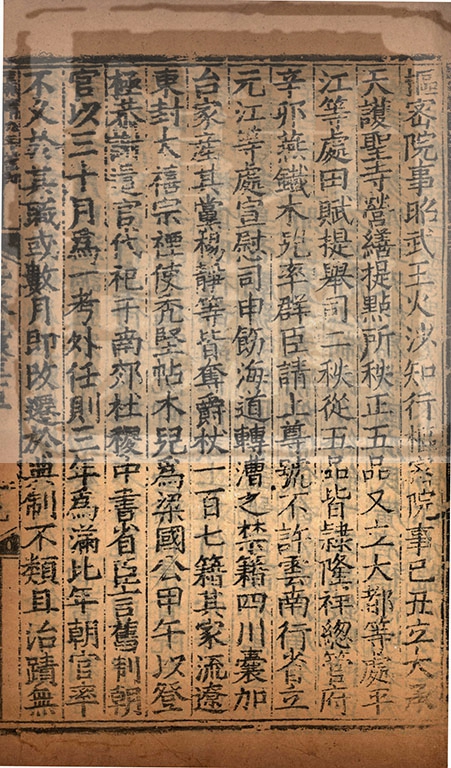 樞密院事昭武王火沙知行樞密院事己丑立大承
天護聖寺營繕提點所秩正五品又立大都等處平
江等處田賦提舉司二秩從五品皆隷隆祥總管府
辛卯燕鐵木兒率群臣請上尊號不許雲南行省立
元江等處宣慰司申飭海道轉漕之禁籍四川囊加
台家產其黨楊靜等皆奪爵杖一百七籍其家流遼
東封太禧宗禋使禿堅帖木兒爲梁國公甲午以登
極恭謝遣官代祀于南郊社稷中書省臣言舊制朝
官以三十月爲一考外任則三年爲滿比年朝官率
不久於其職或數月即改遷於典制不類且治蹟無